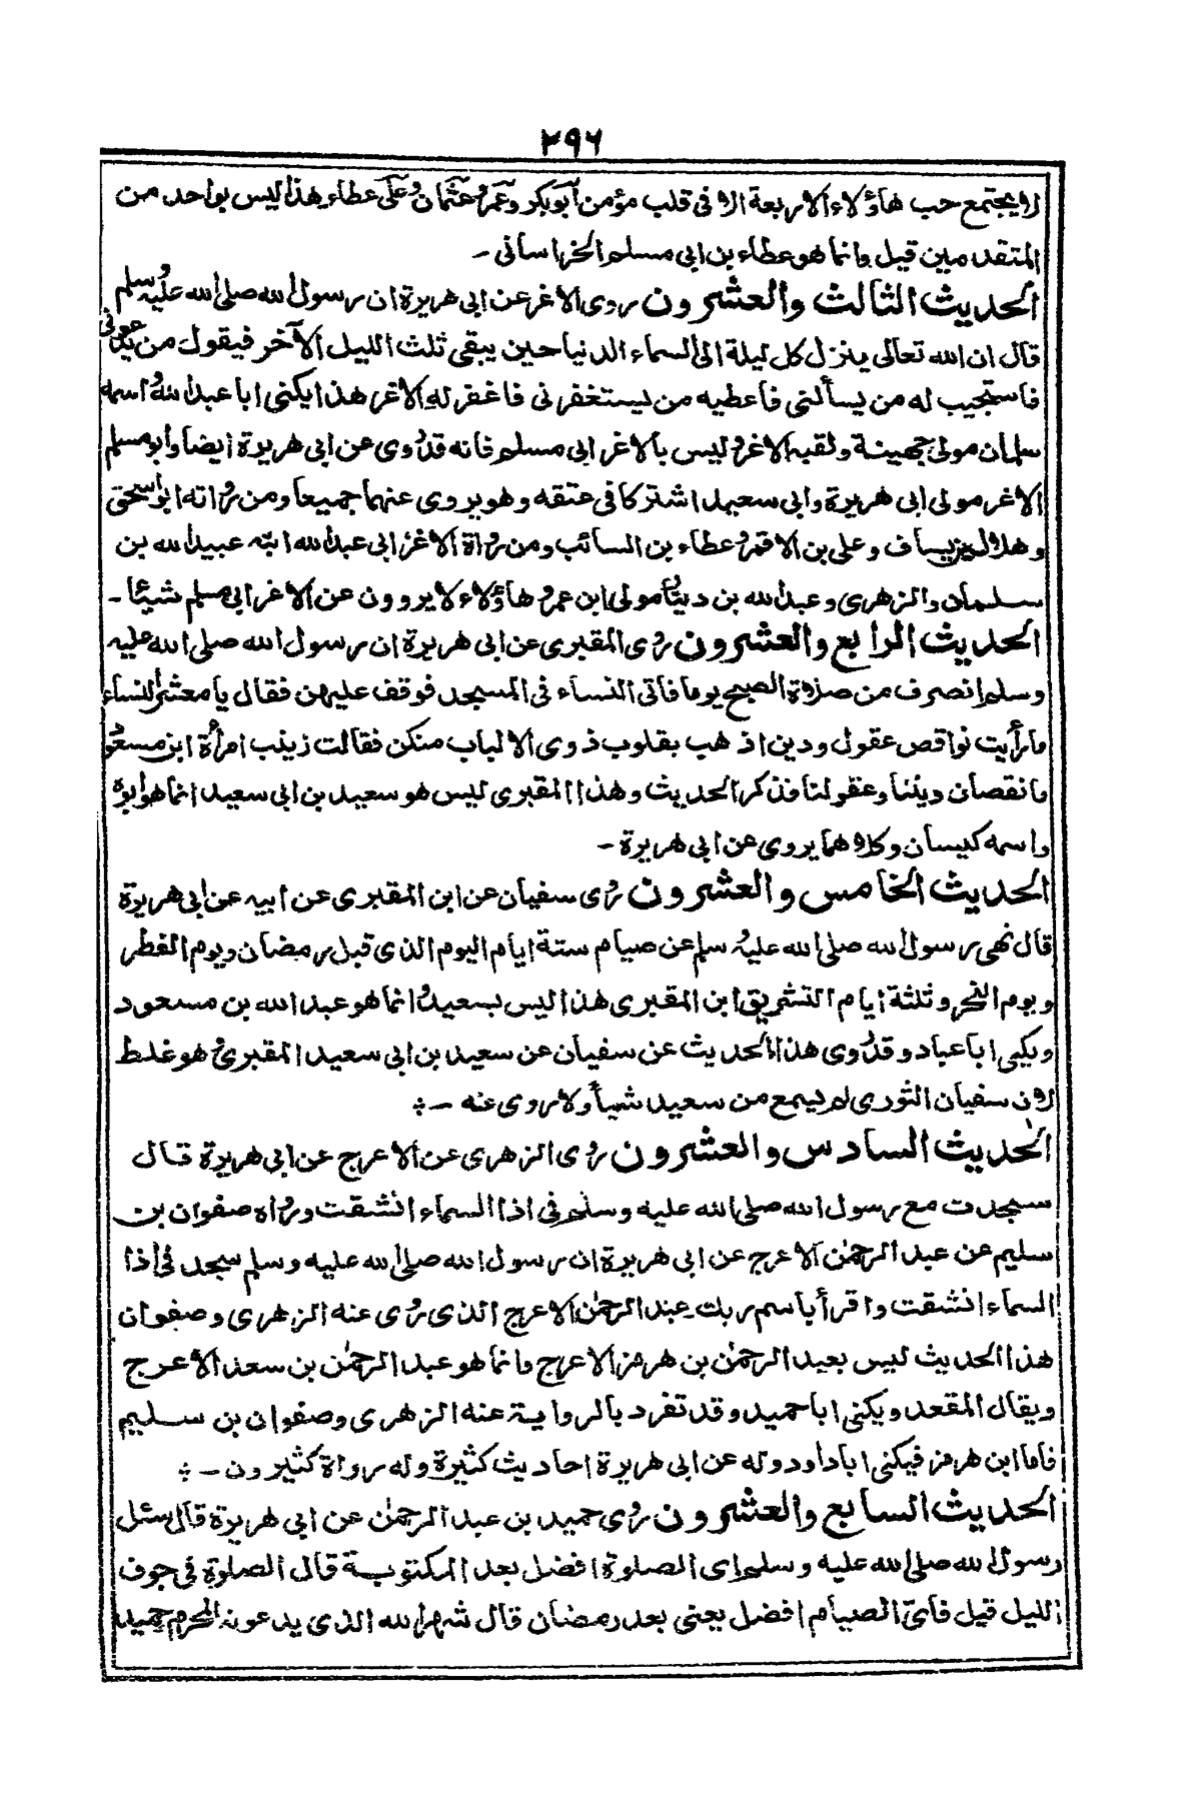 ٢٩٦
لا يجتمع حب هاؤلاء الاربعة الا فى قلب مؤمن أبوبكر وعمر وعثمان وعلى عطاء هذا ليس بواحد من
المتقدمين قيل وانما هو عطاء بن ابى مسلم الخراسانى ـ
الحديث الثالث والعشرون روى الاغر عن ابى هريرة ان رسول الله صلى الله عليه وسلم
قال ان الله تعالى ينزل كل ليلة الى السماء الدنيا حين يبقى ثلث الليل الآخر فيقول من يدعونى
فاستجيب له من يسألنى فاعطيه من يستغفرنى فاغفر له الاغر هذا يكنى ابا عبد الله واسمه
سلمان مولى جهينة ولقبه الاغر وليس بالاغر ابى مسلم فانه قد روى عن ابى هريرة ايضا وابو مسلم
الاغر مولى ابى هريرة وابى سعيد اشتركا فى عتقه وهو يروى عنهما جميعا ومن رواته ابو اسحق
وهلال بن يساف وعلى بن الاقمر وعطاء بن السائب ومن رواة الاغر ابى عبد الله ابنه عبيد الله بن
سلمان والزهرى وعبد الله بن دينار مولى ابن عمر و هاؤلاء لا يروون عن الاغر ابى مسلم شيئا ـ
الحديث الرابع والعشرون روى المقبرى عن ابى هريرة ان رسول الله صلى الله عليه
وسلم انصرف من صلاة الصبح يوما فاتى النساء فى المسجد فوقف عليهن فقال يا معشر النساء
ما رأيت نواقص عقول ودين اذهب بقلوب ذوى الالباب منكن فقالت زينب امرأة ابن مسعود
ما نقصان ديننا وعقولنا فذكر الحديث وهذا المقبرى ليس هو سعيد بن ابى سعيد انما هو ابوه
واسمه كيسان وكلاهما يروى عن ابى هريرة ـ
الحديث الخامس والعشرون روى سفيان عن ابن المقبرى عن ابيه عن ابى هريرة
قال نهى رسول الله صلى الله عليه وسلم عن صيام ستة ايام اليوم الذى قبل رمضان ويوم الفطر
ويوم النحر وثلثة ايام التشريق ابن المقبرى هذا ليس بسعيد وانما هو عبد الله بن مسعود
ويكنى ابا عباد وقد روى هذا الحديث عن سفيان عن سعيد بن ابى سعيد المقبرى وهو غلط
لان سفيان الثورى لم يسمع من سعيد شيأ ولا روى عنه ـ
الحديث السادس والعشرون روى الزهرى عن الاعرج عن ابى هريرة قال
سجدت مع رسول الله صلى الله عليه وسلم فى اذا السماء انشقت ورواه صفوان بن
سليم عن عبد الرحمٰن الاعرج عن ابى هريرة ان رسول الله صلى الله عليه وسلم سجد فى اذا
السماء انشقت واقرأ باسم ربك عبد الرحمٰن الاعرج الذى روى عنه الزهرى وصفوان
هذا الحديث ليس بعبد الرحمٰن بن هرمز الاعرج وانما هو عبد الرحمٰن بن سعد الأعرج
ويقال المقعد ويكنى ابا حميد وقد تفرد بالرواية عنه الزهرى وصفوان بن سليم
فاما ابن هرمز فيكنى ابا داود وله عن ابى هريرة احاديث كثيرة وله رواة كثيرون ـ
الحديث السابع والعشرون روى حميد بن عبد الرحمٰن عن ابى هريرة قال سئل
رسول الله صلى الله عليه وسلم اى الصلوة افضل بعد المكتوبة قال الصلوة فى جوف
الليل قيل فاىّ الصيام افضل يعنى بعد رمضان قال شهر الله الذى يدعونه المحرم حميد